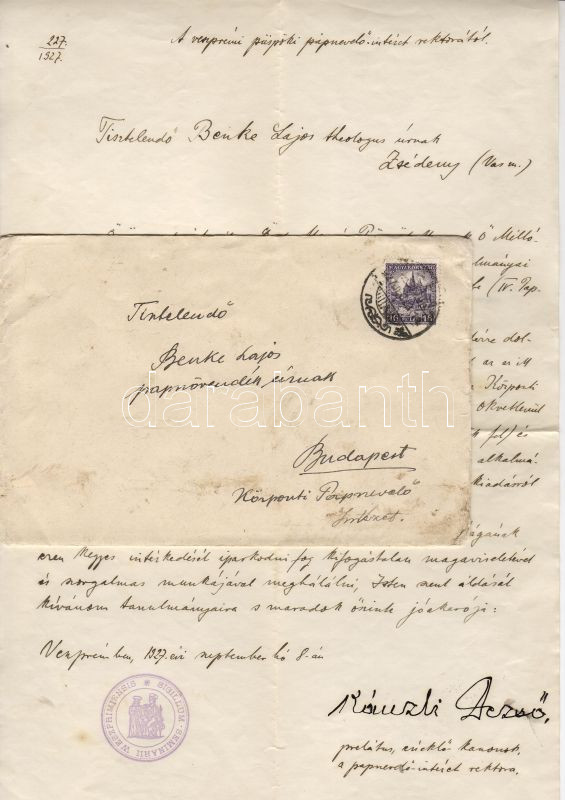 227.
1927.
A veszprémi püspöki papnevelő-intézet rektorától.
Tisztelendő Benke Lajos theologus úrnak
Zsédeny (Vas m.)
Ő Méltó-
(IV. Pap-
dol-
Központi
okvetlenül
és
alkalmá-
kiadásról
MAGYARORSZÁG
16 16
Tisztelendő
Benke Lajos
papnövendék úrnak
Budapest
Központi Papnevelő
Intézet.
darabanth
ezen kegyes intézkedését iparkodni fog kifogástalan magaviseletével
és szorgalmas munkájával meghálálni, Isten szent áldását
kívánom tanulmányaira s maradok őszinte jóakarója:
Veszprémben, 1927. évi szeptember hó 8-án
SIGILLUM SEMINARII WESZPRIMIENSIS
Káuzli Dezső,
prelátus, éneklő kanonok,
a papnevelő-intézet rektora.